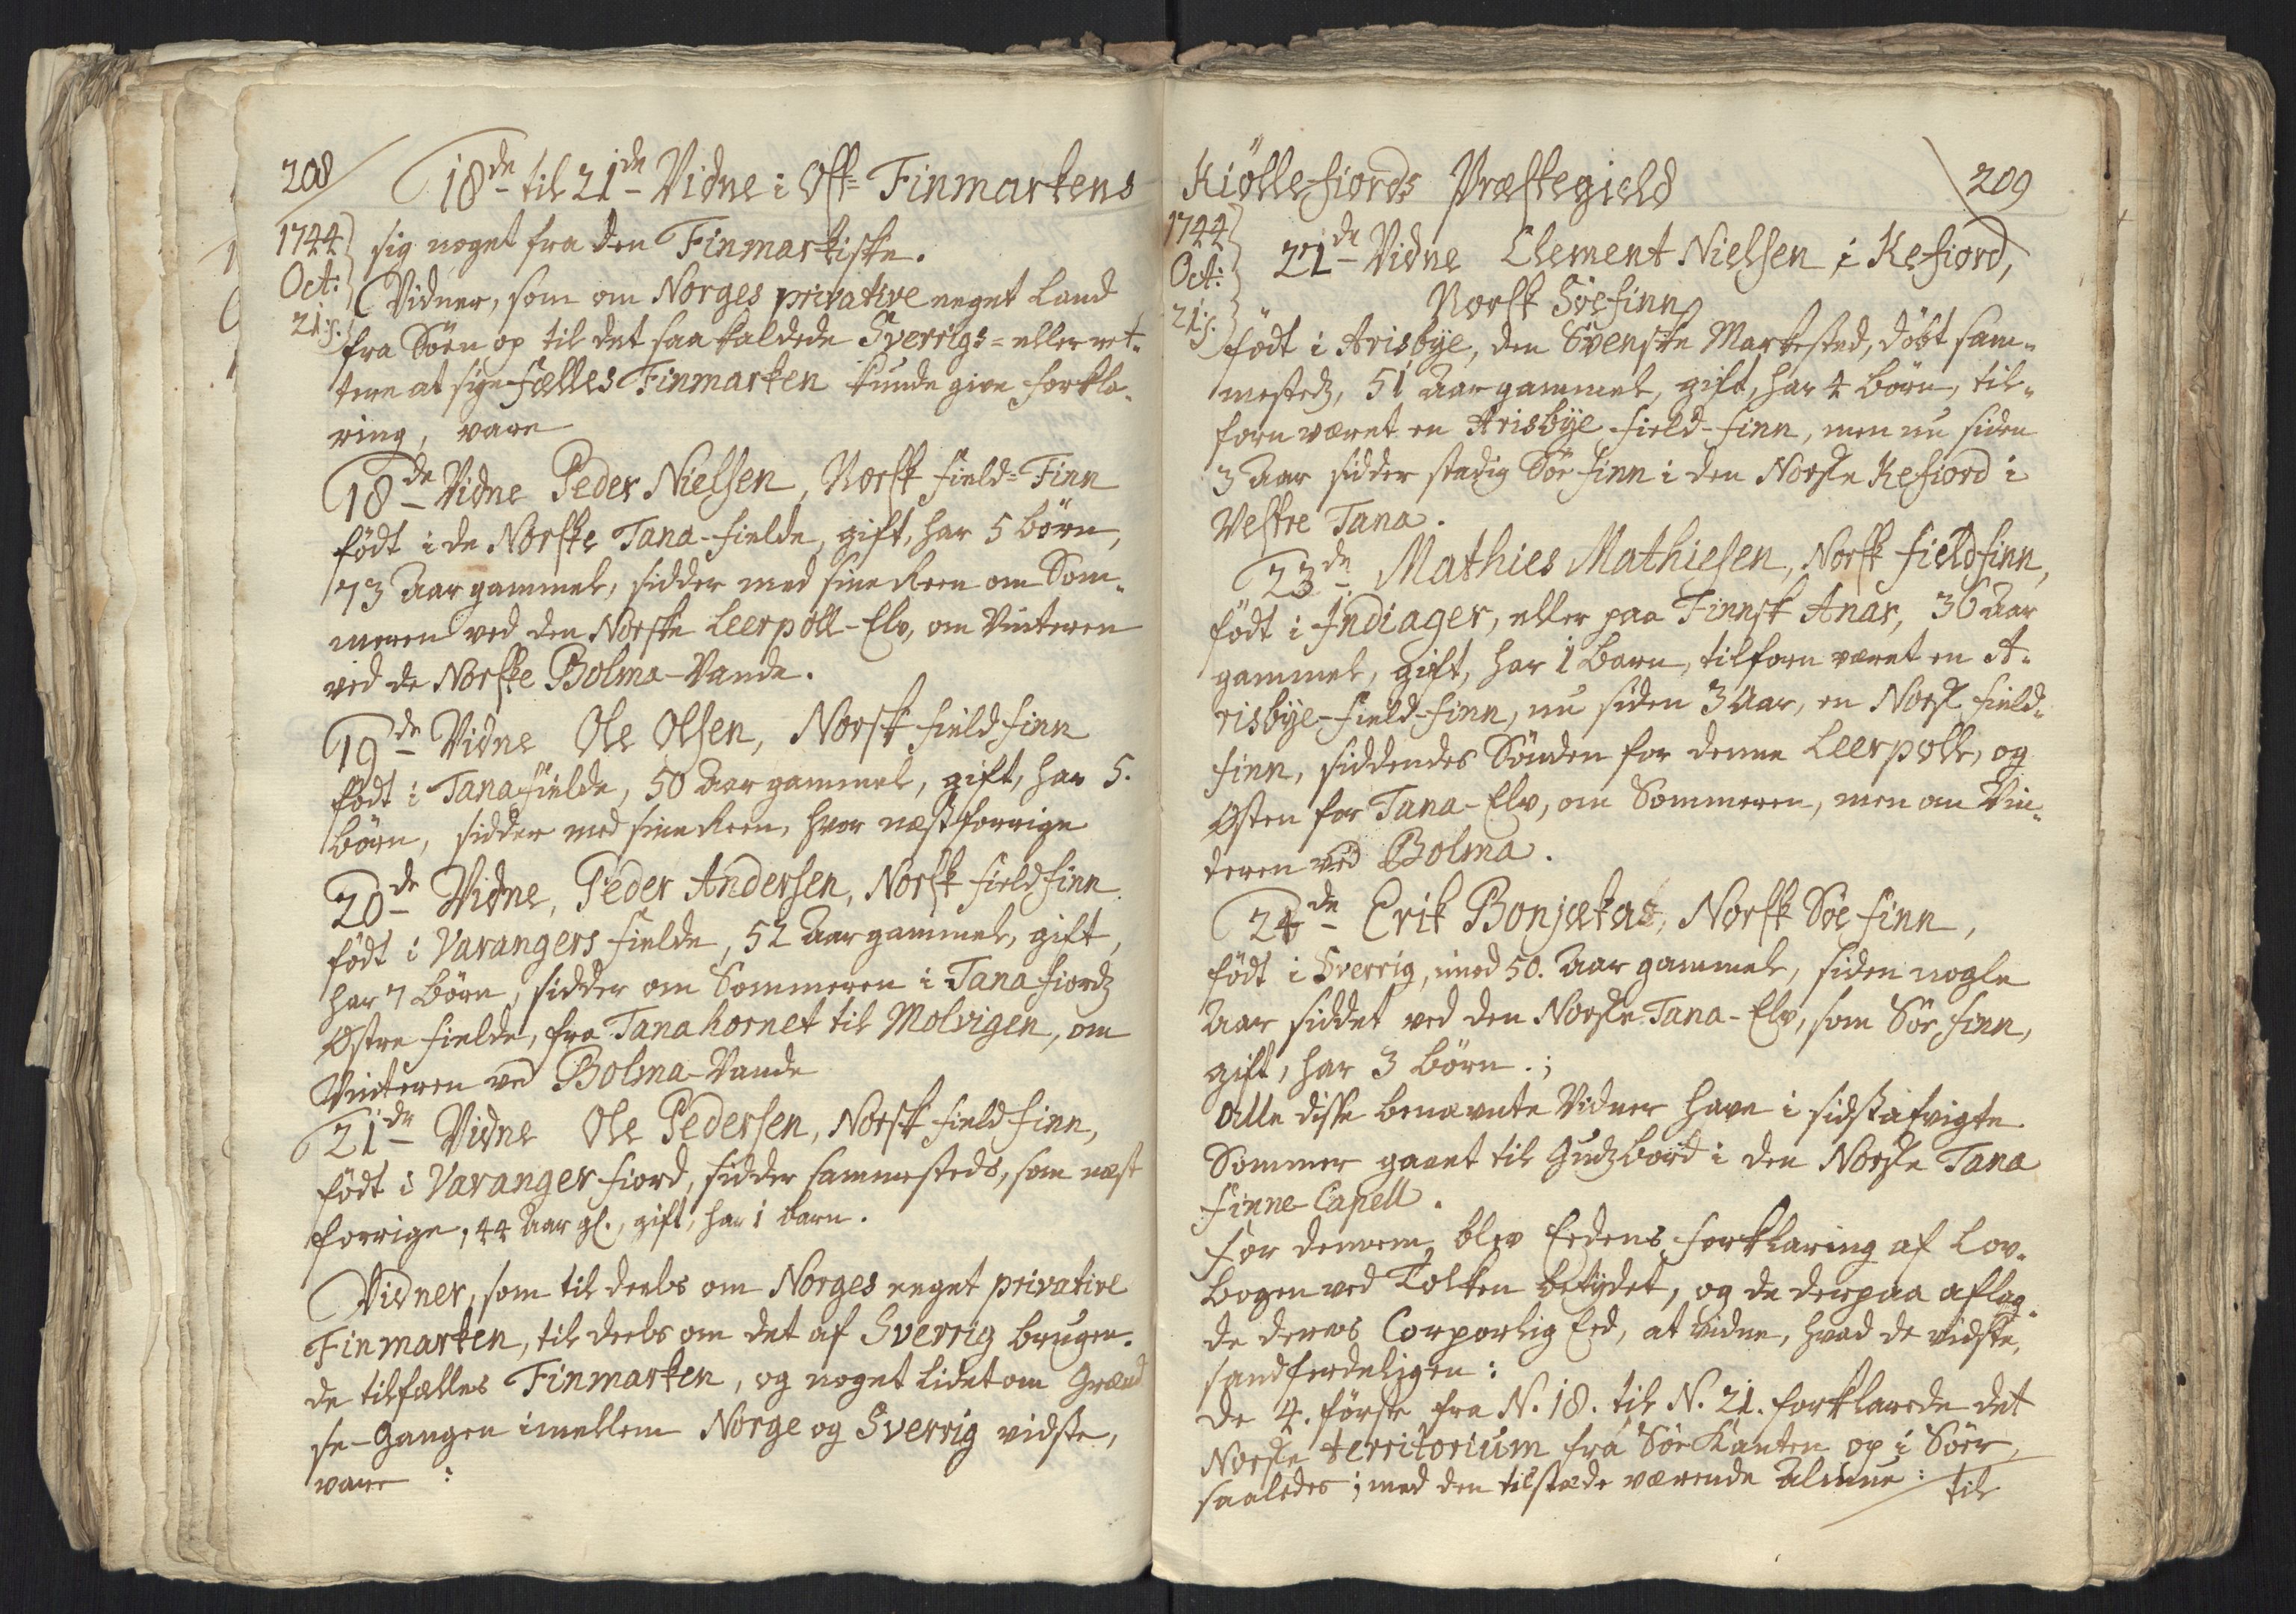 208
18de til 21de Vidne i Øst-Finmarkens
1744
Oct:
21:s.
sig noget fra den Finmarkiske.
Vidner, som om Norges privative eeget Land
fra Söen op til det saa kaldede Sverrigs- eller ret-
tere at sige Fælles Finmarken kunde give forkla-
ring, vare
18de Vidne Peder Nielsen, Norsk Field-Finn
födt i de Norske Tana-fielde, gift, har 5 börn,
73 Aar gammel, sidder med sine Reen om Som-
meren ved den Norske Leerpoll-Elv, om Vinteren
ved de Norske Bolma-Vande.
19de Vidne Ole Olsen, Norsk fieldfinn
födt i Tanafielde, 50 Aar gammel, gift, har 5.
börn, sidder med sine Reen, hvor næstforrige
20de Vidne, Peder Andersen, Norsk fieldfinn
födt i Varangers fielde, 52 Aar gammel, gift,
har 7 börn, sidder om Sommeren i Tanafiordz
Östre fielde, fra Tanahornet til Molvigen, om
Vinteren ved Bolma-Vande
21de Vidne Ole Pedersen, Norsk fieldfinn,
födt i Varanger fiord, sidder sammesteds, som næst
forrige, 44 Aar gl., gift, har 1 barn.
Vidner, som til deels om Norges eeget privative
Finmarken, til deels om det af Sverrig brugen-
de tilfælles Finmarken, og noget lidet om Grænd
se-Gangen imellem Norge og Sverrig vidste,
vare :
Kiöllefiords Præstegield
209
1744
Oct:
21:s.
21de Vidne Clement Nielsen i Kefiord,
Norsk Söefinn
födt i Arisbye, den Svenske Markested, döbt sam-
mestedz, 51 Aar gammel, gift, har 4 börn, til-
forn været en Arisbye-field-finn, men nu siden
3 Aar sidder stadig Söe finn i den Norske Kefiord i
Vestre Tana.
23de Mathies Mathiesen, Norsk fieldfinn,
födt i Indiager, eller paa Finnsk Anar, 36 Aar
gammel, gift, har 1 Barn, tilforn været en A-
risbye-field-finn, nu siden 3 Aar, en Norsk field-
finn, siddendes Sönden for denne Leerpolle, og
Östen for Tana-Elv, om Sommeren, men om Vin-
teren ved Bolma.
24de Erik Bonjakas, Norsk Söe finn,
födt i Sverrig, imod 50. Aar gammel, siden nogle
Aar siddet ved den Norske Tana-Elv, som Söe finn,
gift, har 3 börn.;
Alle disse benævnte Vidner have i sidstafvigte
Sommer gaaet til Gudzbord i den Norske Tana
Finne-Capell.
For dennem blev Eedens forklaring af Lov-
bogen ved Tolken betydet, og de derpaa aflag-
de deres Corporlig Eed, at vidne, hvad de vidste,
sandferdeligen:
De 4. förste fra N. 18. til N. 21. forklarede det
Norske territorium fra Söe Kanten op i Söer,
saaledes; med den tilstæde værende Almue:
til